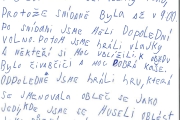 PROTOŽE SNÍDANĚ BYLA AŽ V 9:00
PO SNÍDANI JSME MĚLI DOPOLEDNÍ
VOLNO. POTOM JSME HRÁLI VLAJKY
A NĚKTEŘÍ SI MOC
BYLO ŠVAČA A MOC DOBRÁ KAŠE.
ODPOLEDNE JSME HRÁLI HRU, KTERÁ
SE JMENOVALA OBLEČ SE JAKO
JSME SE MUSELI OBLÉST